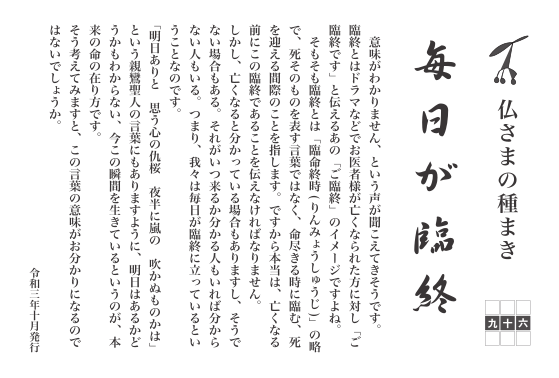 仏さまの種まき
九十六
毎日が臨終
意味がわかりません、という声が聞こえてきそうです。
臨終とはドラマなどでお医者様が亡くなられた方に対し「ご
臨終です」と伝えるあの「ご臨終」のイメージですよね。
そもそも臨終とは「臨命終時(りんみょうしゅうじ)」の略
で、死そのものを表す言葉ではなく、命尽きる時に臨む、死
を迎える間際のことを指します。ですから本当は、亡くなる
前にこの臨終であることを伝えなければなりません。
しかし、亡くなると分かっている場合もありますし、そうで
ない場合もある。それがいつ来るか分かる人もいれば分から
ない人もいる。つまり、我々は毎日が臨終に立っているとい
うことなのです。
「明日ありと 思う心の仇桜 夜半に嵐の 吹かぬものかは」
という親鸞聖人の言葉にもありますように、明日はあるかど
うかもわからない、今この瞬間を生きているというのが、本
来の命の在り方です。
そう考えてみますと、この言葉の意味がお分かりになるので
はないでしょうか。
令和三年十月発行